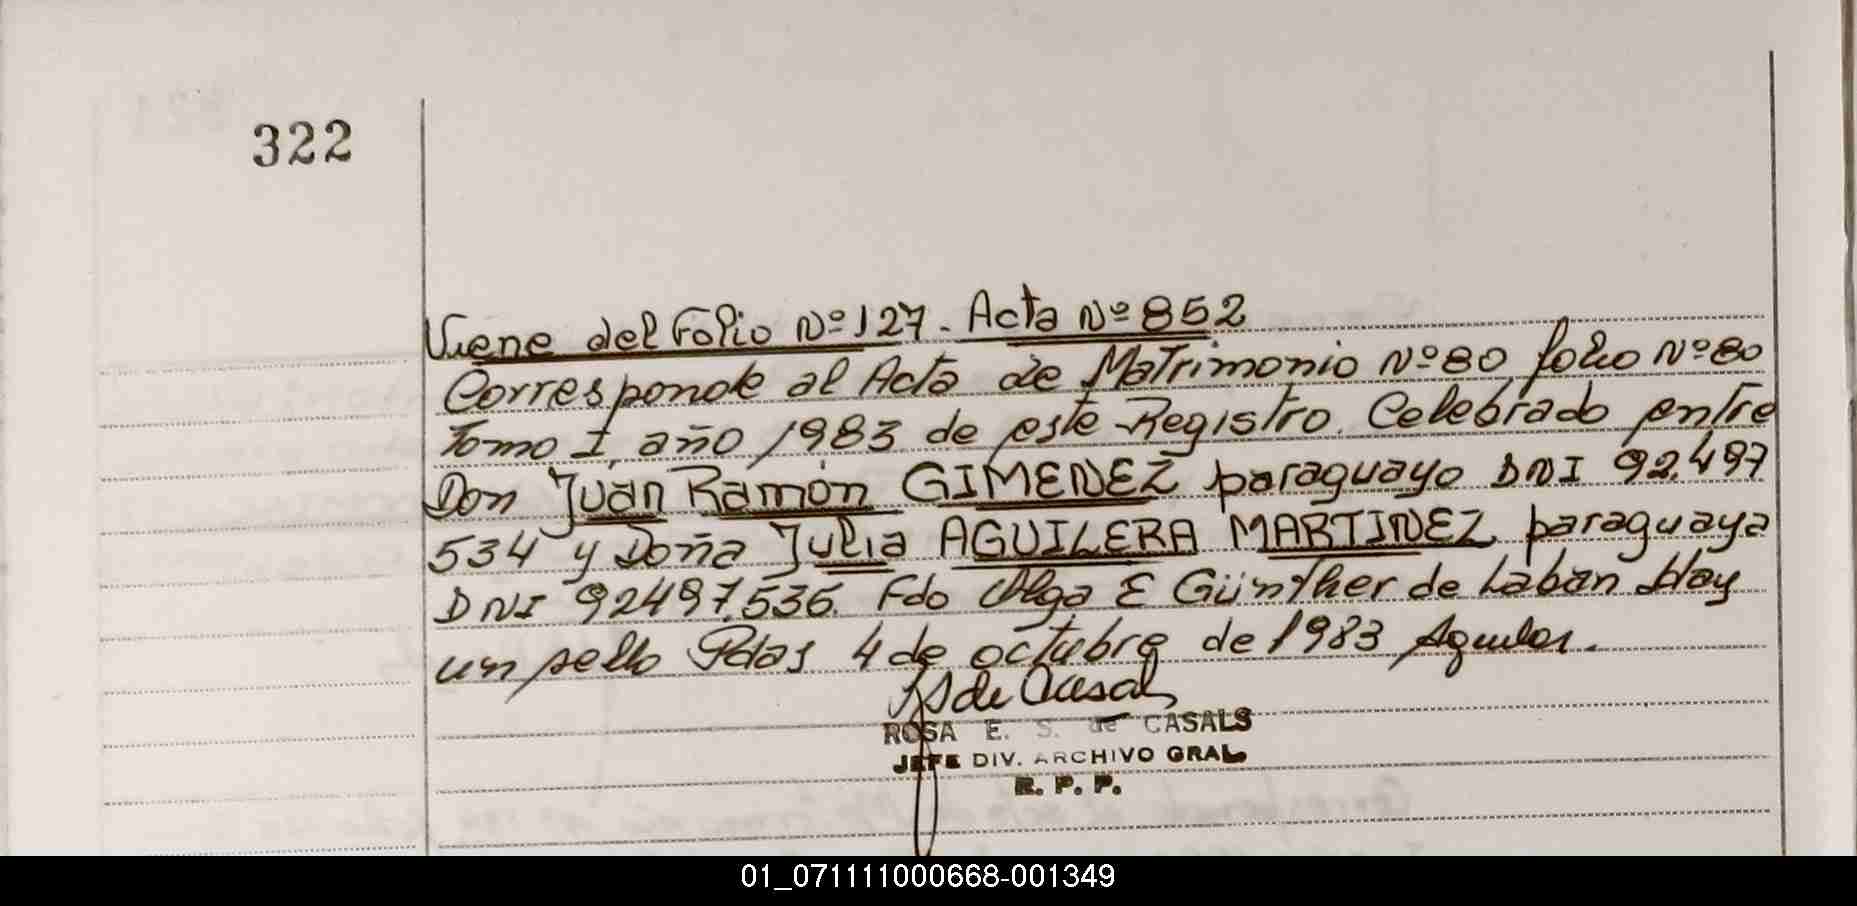 322
Viene del Folio Nº 127 - Acta Nº 852
Corresponde al Acta de Matrimonio Nº 80 folio Nº 80
Tomo I, año 1983 de este Registro. Celebrado entre
Don Juan Ramón GIMENEZ paraguayo DNI 92.497
534 y Doña Julia AGUILERA MARTINEZ, paraguaya
DNI 92497.536. Fdo Olga E Günther de Laban Hay
un sello Pdas 4 de octubre de 1983 Aguilar.
ROSA E. S. de CASALS
JEFE DIV. ARCHIVO GRAL
R. P. P.
01_071111000668-001349